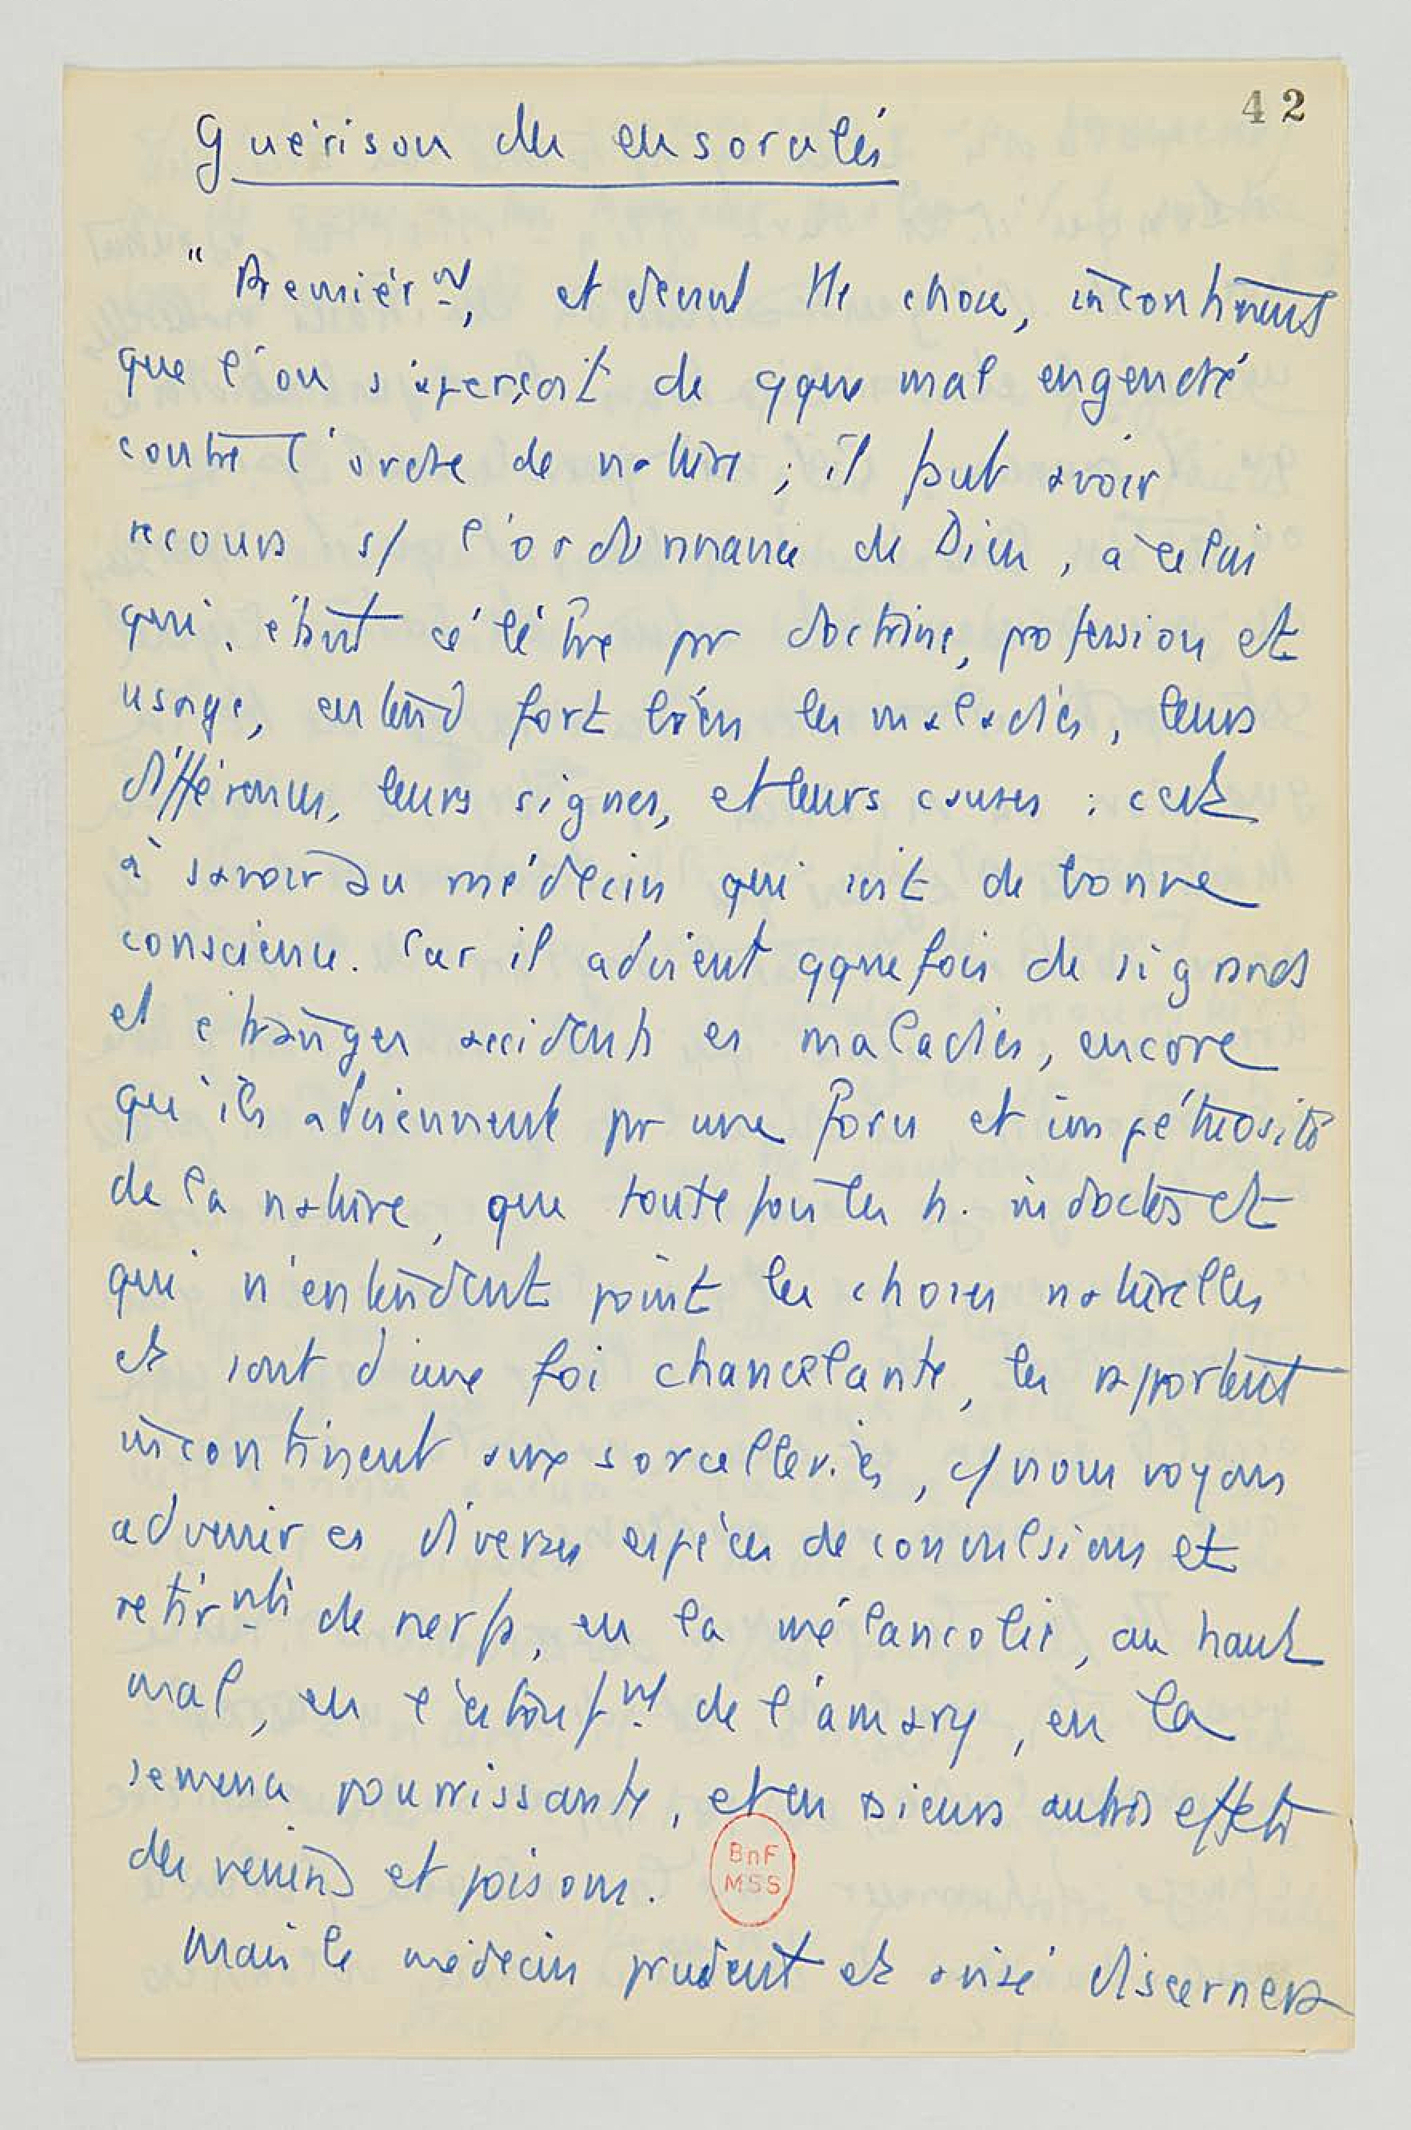 42
Guérison des ensorcelés
" Premièr.nt, et devant tte chose, incontinent
que l'on s'aperçoit de qque mal engendré
contre l'ordre de nature ; il faut avoir
recours s/ l'ordonnance de Dieu, à celui
qui, étant célèbre pr doctrine, profession et
usage, entend fort bien les maladies, leurs
différences, leurs signes, et leurs causes : c'est
à savoir au médecin qui soit de bonne
conscience. Car il advient qquefois de si grands
et étranges accidents es maladies, encore
qu'ils adviennent pr une force et impétuosité
de la nature, que toutefois les h. indoctes et
qui n'entendent point les choses naturelles
et sont d'une foi chancelante, les rapportent
incontinent aux sorcelleries, c/ nous voyons
advenir es diverses espèces de convulsions et
retir.nts de nerfs, en la mélancolie, au haut
mal, en l'étouf.nt de l'amary, en la
semence pourrissante, et en sieurs autres effets
des venins et poisons.
BnF
MSS
Mais le médecin prudent et avisé discernera